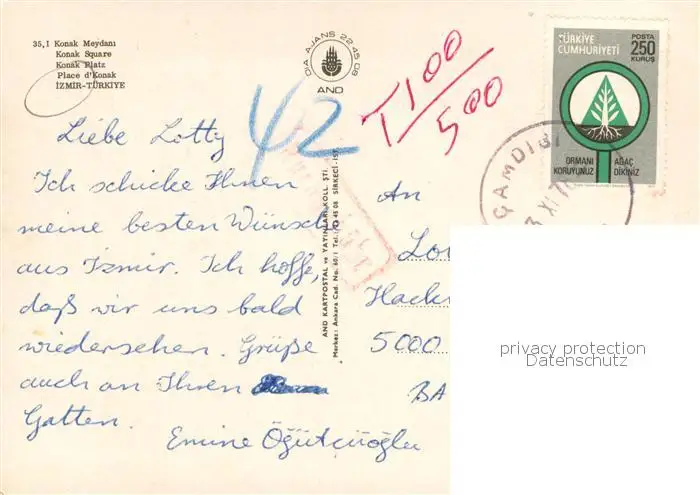 35,1 Konak Meydanı
Konak Square
Konak Platz
Place d'Konak
İZMİR-TÜRKİYE
AJANS 22 45 08
AND
42
T 100
500
TÜRKİYE CUMHURİYETİ
POSTA
250
KURUŞ
ORMANI
KORUYUNUZ
AĞAÇ
DİKİNİZ
ÇAMDİBİ
Liebe Lotty
Ich schicke Ihnen
meine besten Wünsche
aus Izmir. Ich hoffe,
daß wir uns bald
wiedersehen. Grüße
auch an Ihren
Gatten.
Emine Öğütçüoğlu
AND KARTPOSTAL ve YAYINLARI, KOLL. ŞTİ.
Merkez: Ankara Cad. No. 60/1 Tel.: 22 45 08 SİRKECİ-İST.
An
Lo
Hack
5000
BA
privacy protection
Datenschutz